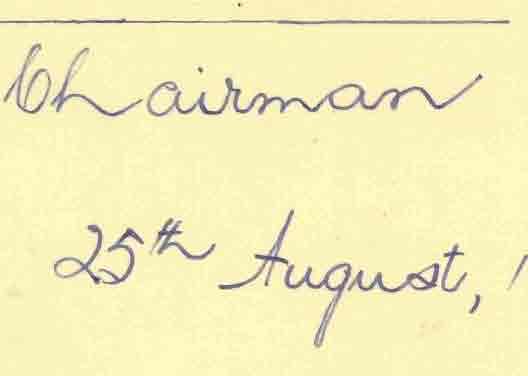 Chairman
25th August,